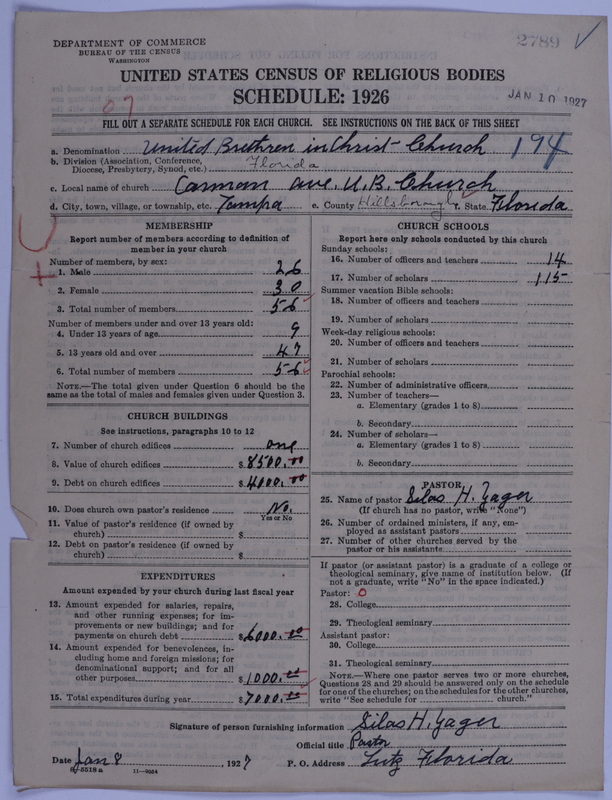 DEPARTMENT OF COMMERCE
BUREAU OF THE CENSUS
WASHINGTON
2789
UNITED STATES CENSUS OF RELIGIOUS BODIES
SCHEDULE: 1926
JAN 10 1927
FILL OUT A SEPARATE SCHEDULE FOR EACH CHURCH. SEE INSTRUCTIONS ON THE BACK OF THIS SHEET
a. Denomination United Brethren in Christ Church 194
b. Division (Association, Conference, Diocese, Presbytery, Synod, etc.) Florida
c. Local name of church Carman ave. U.B. Church
d. City, town, village, or township, etc. Tampa e. County Hillsborough f. State Florida
MEMBERSHIP
Report number of members according to definition of member in your church
Number of members, by sex:
1. Male 26
2. Female 30
3. Total number of members 56
Number of members under and over 13 years old:
4. Under 13 years of age 9
5. 13 years old and over 47
6. Total number of members 56
NOTE.—The total given under Question 6 should be the same as the total of males and females given under Question 3.
CHURCH BUILDINGS
See instructions, paragraphs 10 to 12
7. Number of church edifices one
8. Value of church edifices $8500.00
9. Debt on church edifices $4000.00
10. Does church own pastor's residence No.
Yes or No
11. Value of pastor's residence (if owned by church) $
12. Debt on pastor's residence (if owned by church) $
EXPENDITURES
Amount expended by your church during last fiscal year
13. Amount expended for salaries, repairs, and other running expenses; for improvements or new buildings; and for payments on church debt $6000.00
14. Amount expended for benevolences, including home and foreign missions; for denominational support; and for all other purposes $1000.00
15. Total expenditures during year $7000.00
CHURCH SCHOOLS
Report here only schools conducted by this church
Sunday schools:
16. Number of officers and teachers 14
17. Number of scholars 115
Summer vacation Bible schools:
18. Number of officers and teachers
19. Number of scholars
Week-day religious schools:
20. Number of officers and teachers
21. Number of scholars
Parochial schools:
22. Number of administrative officers
23. Number of teachers—
a. Elementary (grades 1 to 8)
b. Secondary
24. Number of scholars—
a. Elementary (grades 1 to 8)
b. Secondary
PASTOR
25. Name of pastor Silas H. Yager
(If church has no pastor, write "None")
26. Number of ordained ministers, if any, employed as assistant pastors
27. Number of other churches served by the pastor or his assistants
If pastor (or assistant pastor) is a graduate of a college or theological seminary, give name of institution below. (If not a graduate, write "No" in the space indicated.)
Pastor: 0
28. College
29. Theological seminary
Assistant pastor:
30. College
31. Theological seminary
NOTE.—Where one pastor serves two or more churches, Questions 28 and 29 should be answered only on the schedule for one of the churches; on the schedules for the other churches, write "See schedule for church."
Signature of person furnishing information Silas H. Yager
Official title Pastor
Date Jan 8 1927 P. O. Address Lutz Florida
8-5518a 11-9684